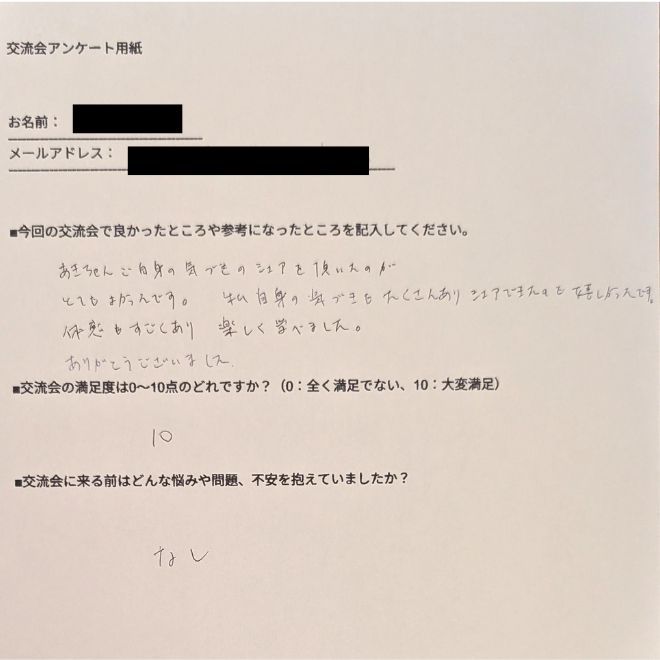 交流会アンケート用紙
お名前：
メールアドレス：
■今回の交流会で良かったところや参考になったところを記入してください。
あきちゃんご自身の気づきのシェアを頂いたのが
とてもよかったです。 私自身の気づきもたくさんありシェアできたのも嬉しかったです。
体感もすごくあり 楽しく学べました。
ありがとうございました。
■交流会の満足度は0〜10点のどれですか？（0：全く満足でない、10：大変満足）
10
■交流会に来る前はどんな悩みや問題、不安を抱えていましたか？
なし